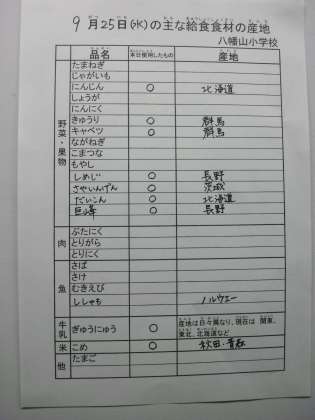 9月25日(水)の主な給食食材の産地
八幡山小学校
品名 本日使用したもの 産地
野菜・果物
たまねぎ
じゃがいも
にんじん ○ 北海道
しょうが
にんにく
きゅうり ○ 群馬
キャベツ ○ 群馬
ながねぎ
こまつな
もやし
しめじ ○ 長野
さやいんげん ○ 茨城
だいこん ○ 北海道
巨峰 ○ 長野
肉
ぶたにく
とりがら
とりにく
魚
さば
さけ
むきえび
ししゃも ノルウェー
牛乳 ぎゅうにゅう ○ 産地は日々異なり、現在は 関東、
東北、北海道など
米 こめ ○ 秋田・青森
他 たまご